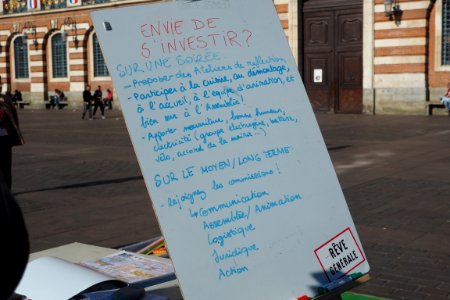 ENVIE DE
S'INVESTIR ?
SUR UNE SOIRÉE
- Proposer des Ateliers de réflection
- Participer à la cuisine, au démontage,
à l'accueil, à l'équipe d'animation, et
bien sûr à l'Assemblée !
- Apporter nourriture, bonne humeur,
électricité (groupe électrogène, batterie,
vélo, accord de la mairie...)
SUR LE MOYEN/LONG TERME.
- Rejoignez les commissions !
Communication
Assemblée/Animation
Logistique
Juridique
Action
RÊVE
GÉNÉRALE